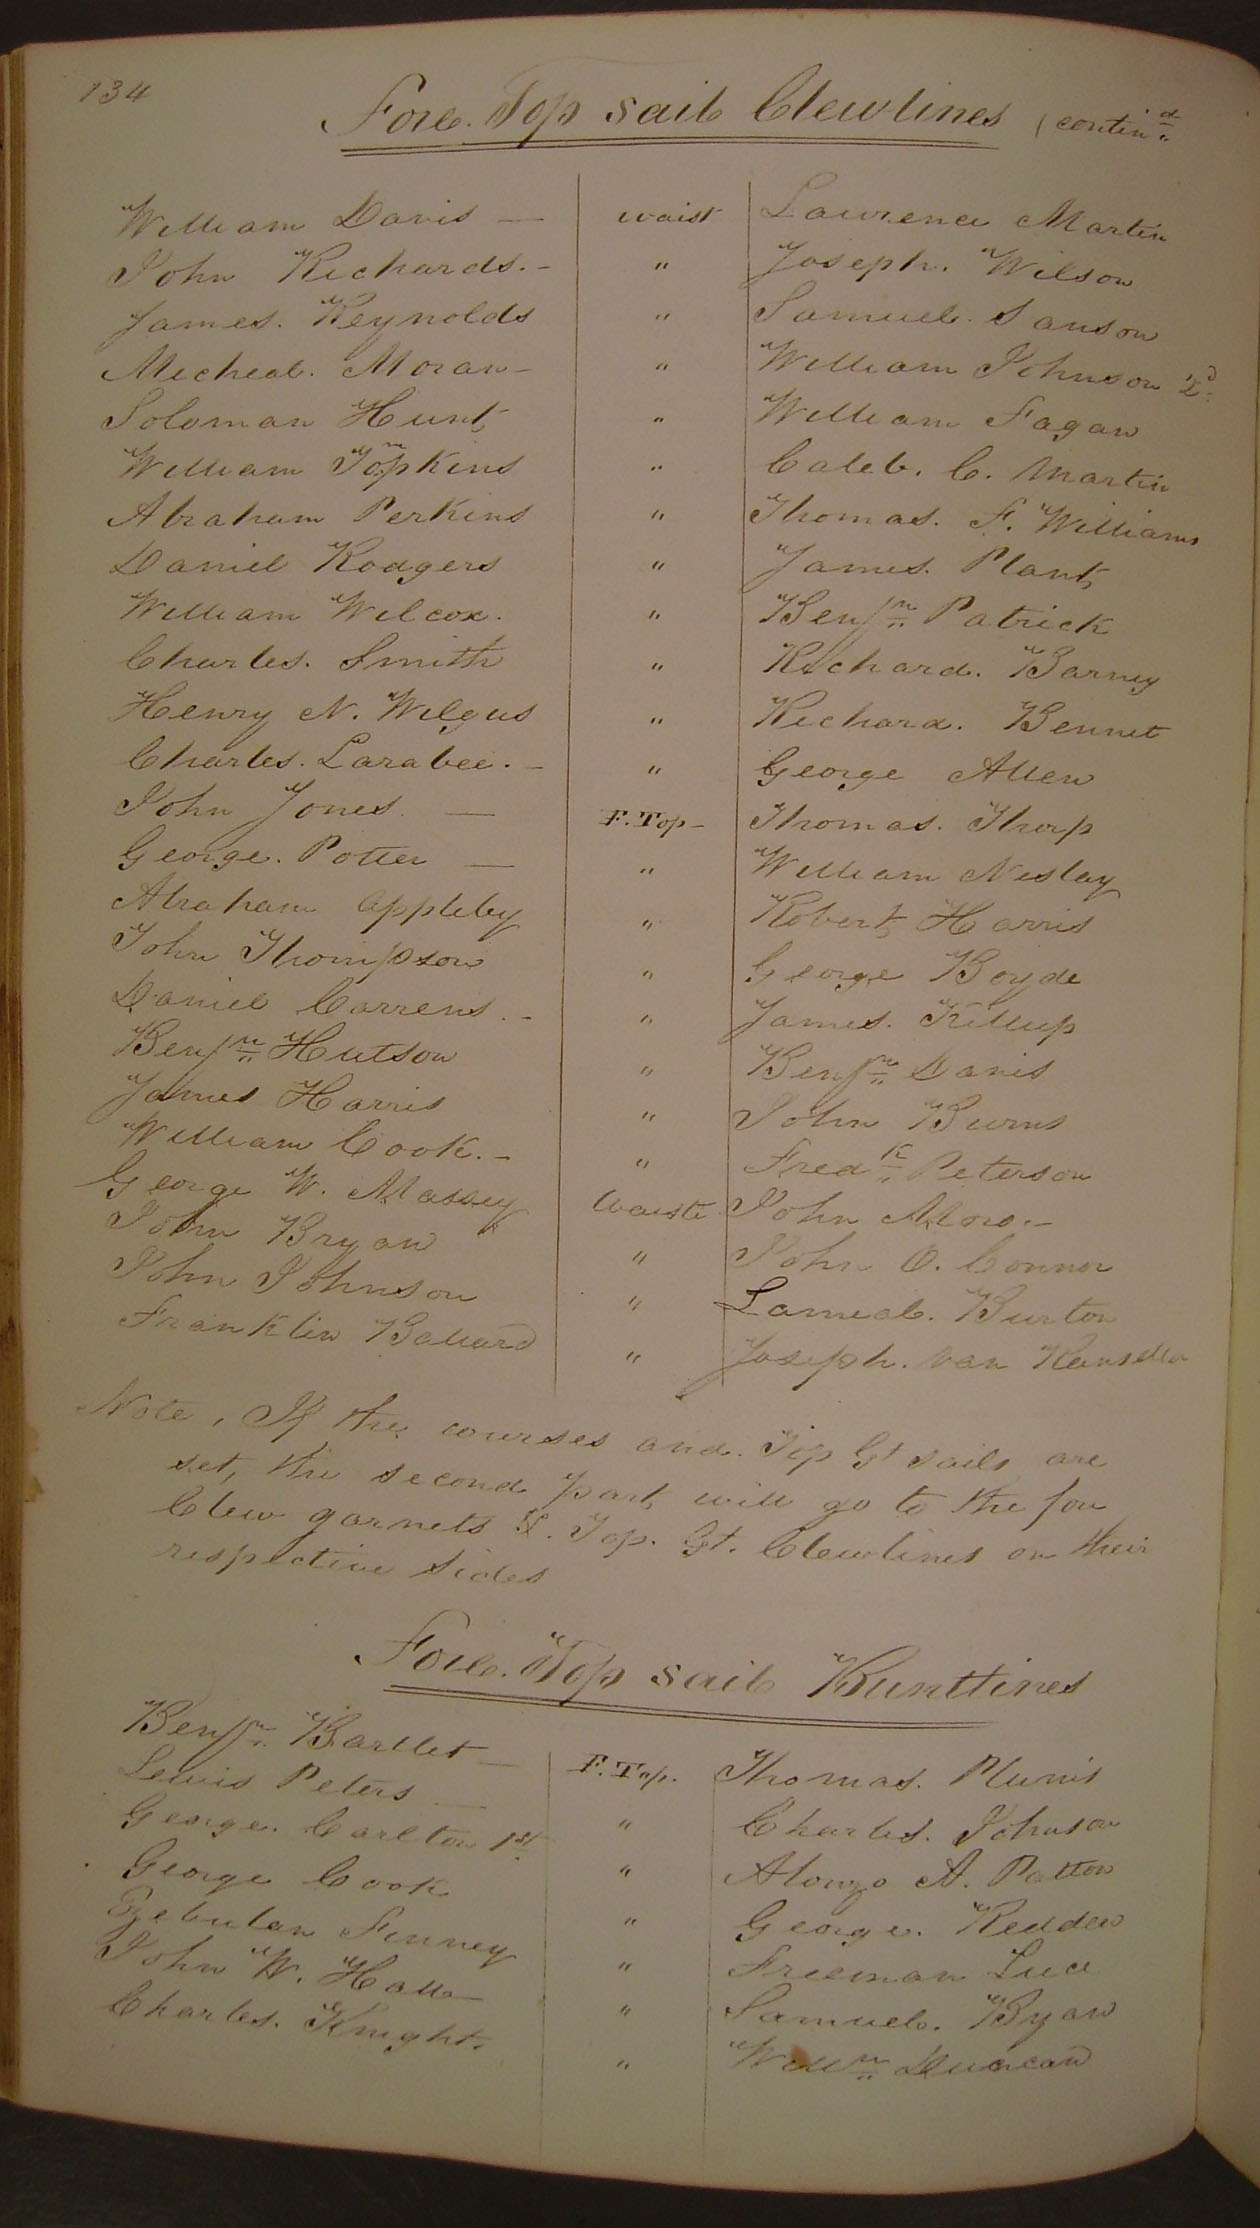 134
Fore. Top sail Clewlines (contin'd
William Davis — waist Lawrence Martin
John Richards. - " Joseph. Wilson
James. Reynolds " Samuel. Sanson
Micheal. Moran - " William Johnson 2d
Soloman Hunt " William Fagan
William Tompkins " Caleb. C. Martin
Abraham Perkins " Thomas. F. Williams
Daniel Rodgers " James. Plant
William Wilcox. " Benjn Patrick
Charles. Smith " Richard. Barney
Henry N. Wilgus " Richard. Bennet
Charles. Larabee. - " George Allen
John Jones. — F. Top - Thomas. Thorp
George. Potter — " William Neslay
Abraham Appleby " Robert Harris
John Thompson " George Boyde
Daniel Carrens. - " James. Killup
Benjn Hutson " Benjn Davis
James Harris " John Burns
William Cook. - " Fredk Peterson
George W. Massey Waiste John Mow. -
John Bryan " John O. Connor
John Johnson " Lameal. Burton
Franklin Ballard " Joseph. Van
Note, If the courses and. Top Gt sails are
set, the second part will go to the fore
Clew garnets &. Top. Gt. Clewlines on their
respective sides
Fore. Top sail Bunttines
Benjn. Bartlet — F. Top. Thomas. Munis
Lewis Peters — " Charles. Johnson
George. Carlton 1st " Alonzo A. Patton
George Cook " George. Redden
Ezebulan Finney " Freeman Luce
John W. Hall — " Samuel. Byan
Charles. Knight. " Willm Duncan